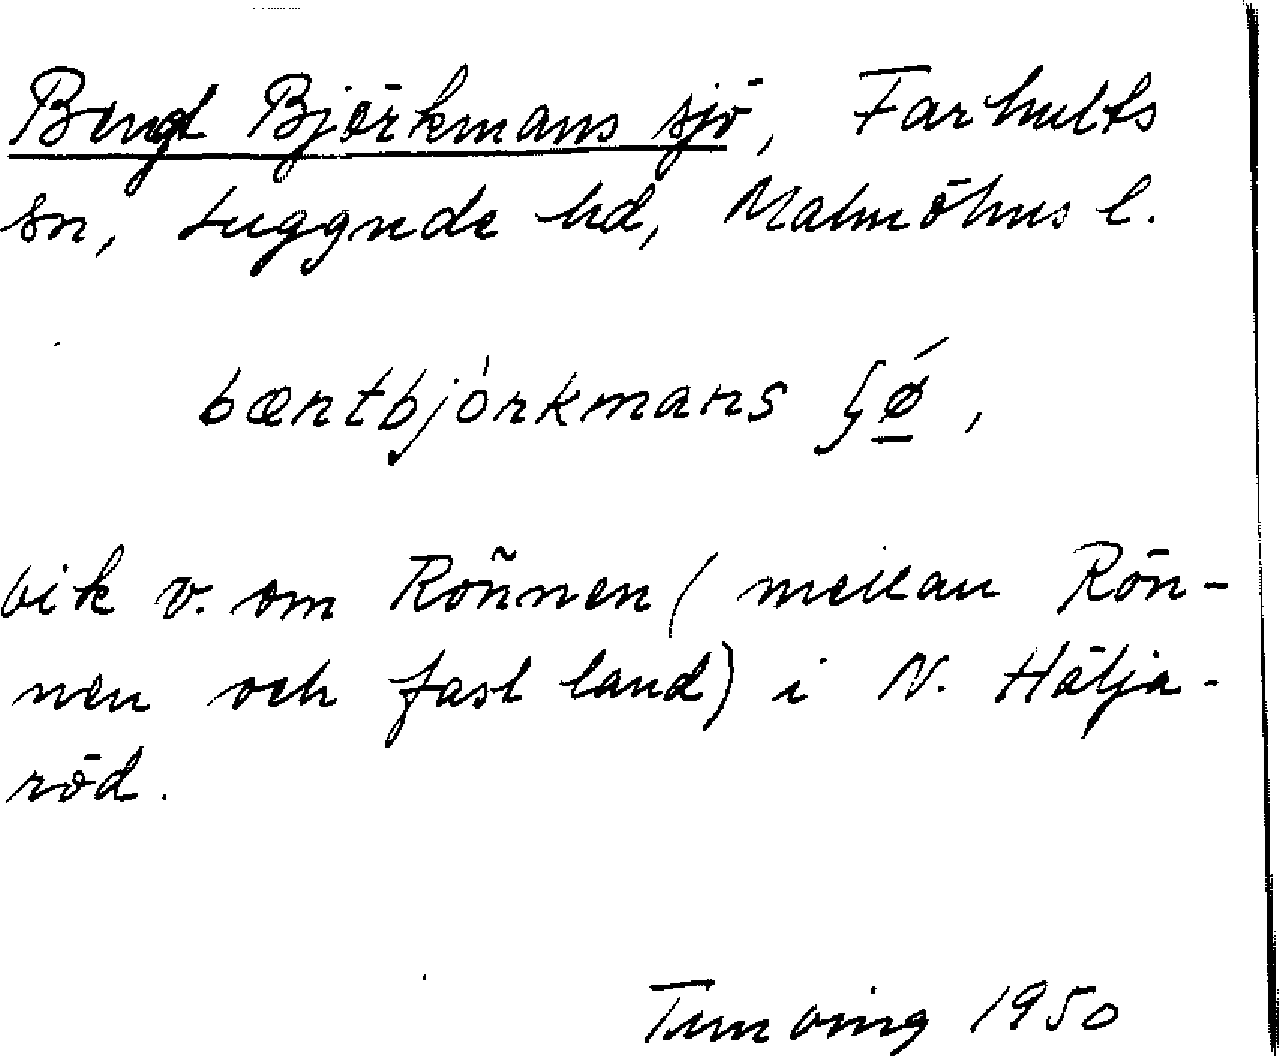 Bengt Björkmans sjö, Farhults
sn, Luggude hd, Malmöhus l.
bæntbjörkmans ʃǿ̱,
vik v. om Rönnen (mellan Rön-
nen och fast land) i N. Hälja-
röd.
Tunving 1950